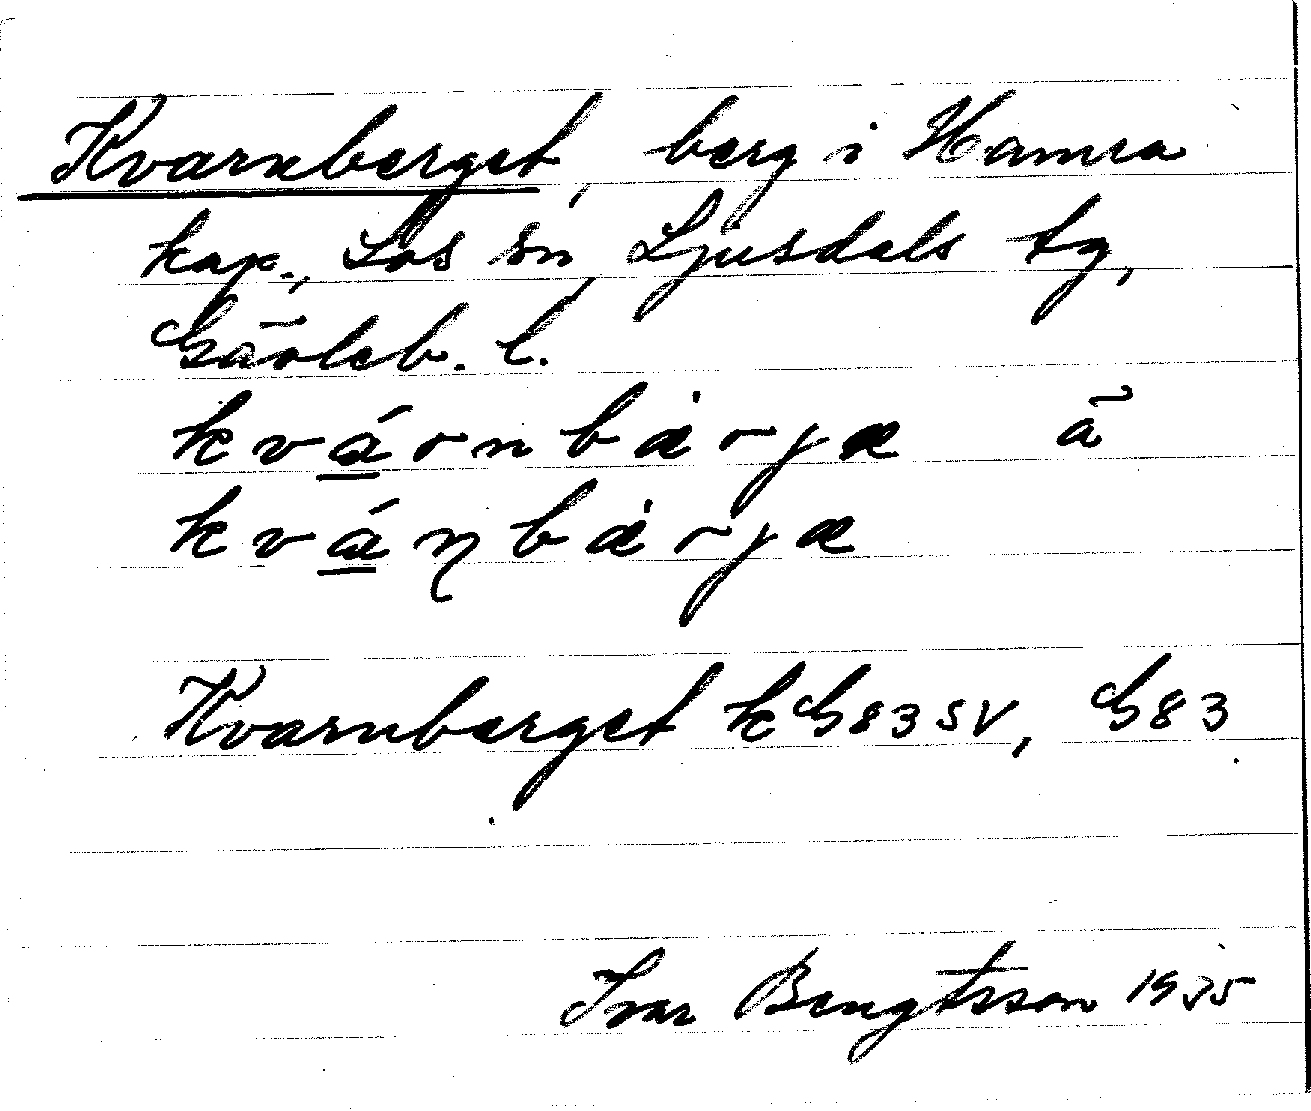 Kvarnberget, berg i Hamra
kap., Los sn, Ljusdals tg,
Gävleb. l.
kvárnbærjæ ã
kváṇbærjæ
Kvarnberget k G83SV, G83
Ivar Bengtsson 1935